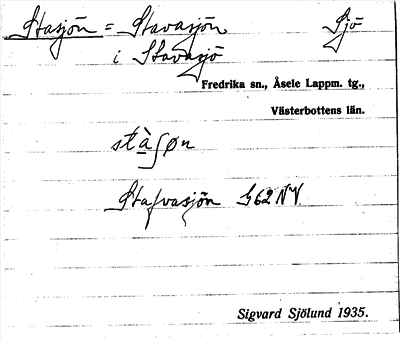 Stasjön = Stavasjön Sjö
i Stavasjö
Fredrika sn., Åsele Lappm. tg.,
Västerbottens län.
stàʃøn
Stafvasjön G62 NV.
Sigvard Sjölund 1935.